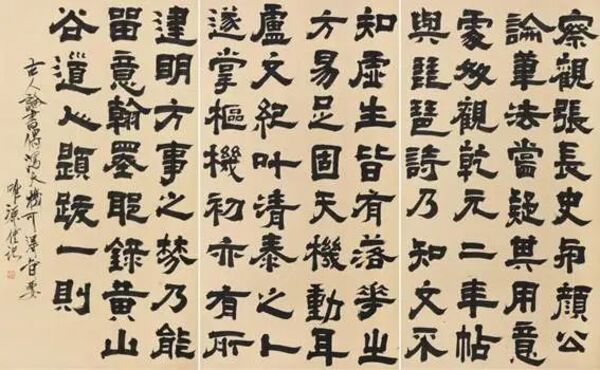 察觀張長史顏公
論筆法當疑其用意
處妙觀乾元二年帖
與琵琶詩乃知文不
知虛生皆有落華之
方易足固天機動耳
盧文紀叶清泰之卜
遂掌樞機初亦有所
逮明方事之棼乃能
留意翰墨耶錄黃山
谷道人題跋一則
古人論書偶天機可得